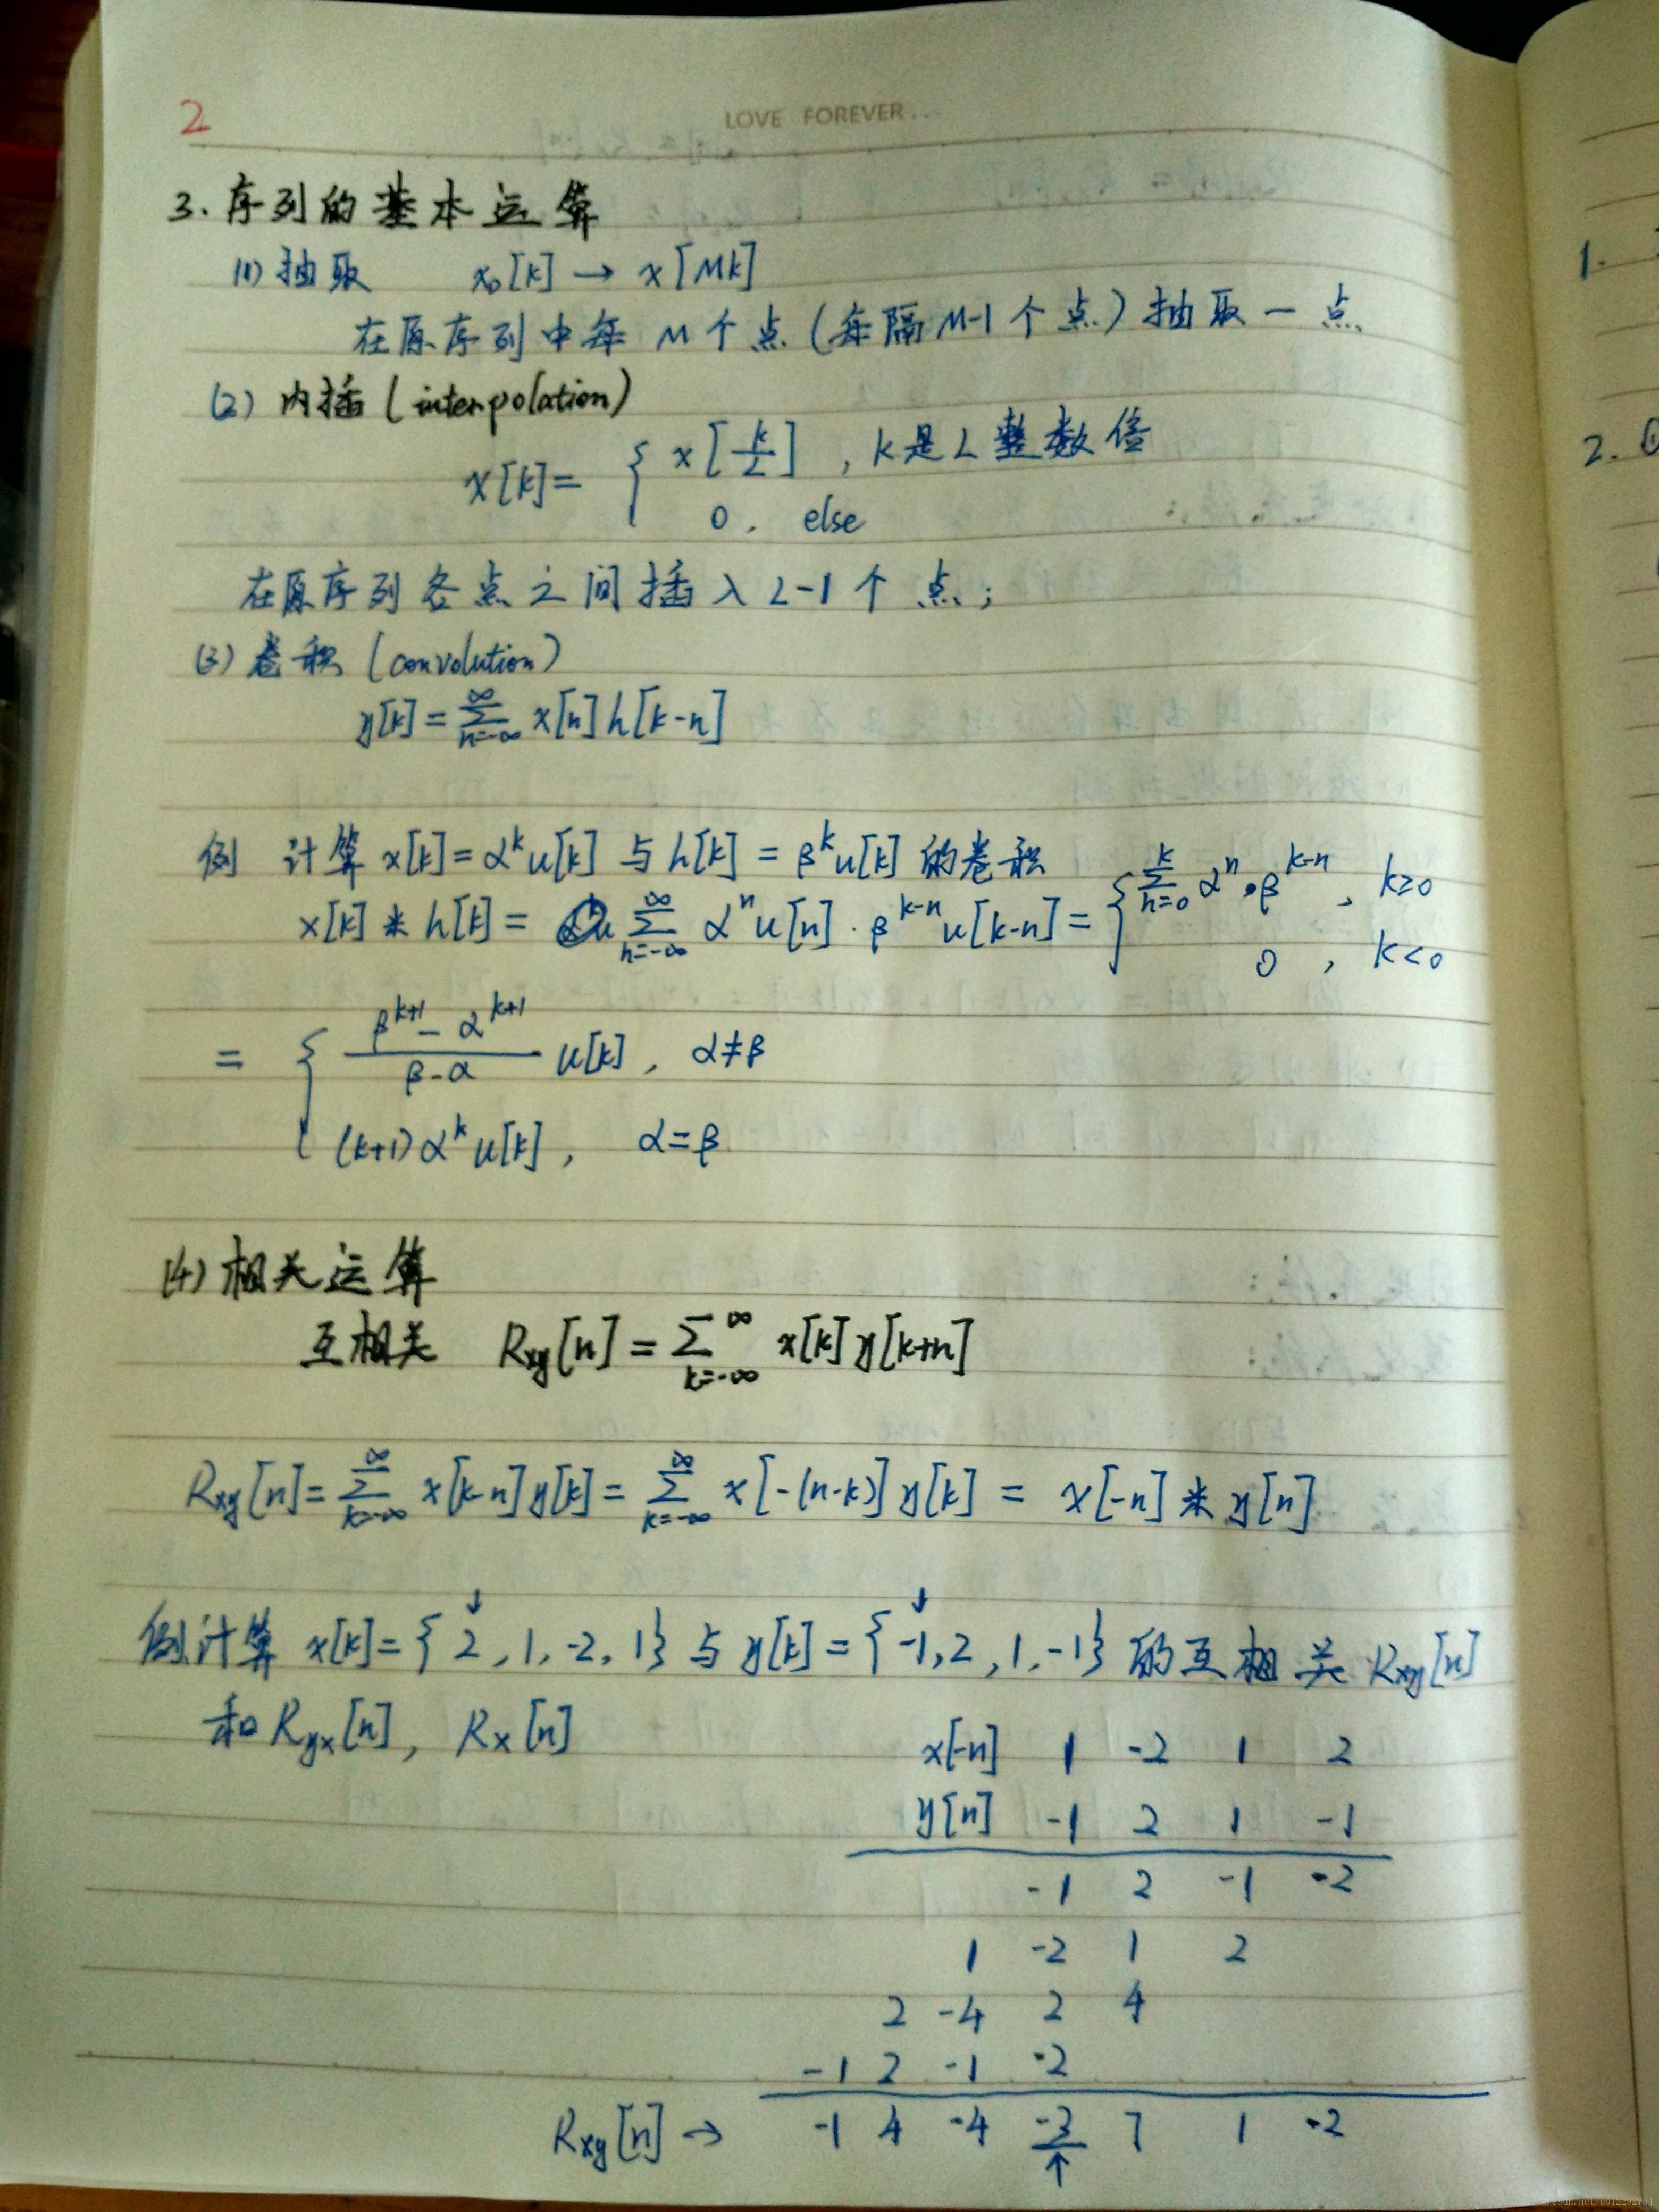 2
LOVE FOREVER...
3. 序列的基本运算
(1) 抽取 x_D[k] → x[Mk]
在原序列中每 M个点 (每隔M-1个点) 抽取一点
(2) 内插 (interpolation)
x[k]= { x[k/L] , k是L整数倍
0 , else
在原序列各点之间插入L-1个点;
(3) 卷积 (convolution)
y[k]=∑_{n=-∞}^{∞} x[n]h[k-n]
例 计算 x[k]=α^k u[k] 与 h[k]=β^k u[k] 的卷积
x[k] * h[k] = ∑_{n=-∞}^{∞} α^n u[n]·β^{k-n} u[k-n] = { ∑_{n=0}^{k} α^n·β^{k-n} , k≥0
0 , k<0
= { (β^{k+1} - α^{k+1})/(β-α) u[k] , α≠β
(k+1)α^k u[k] , α=β
(4) 相关运算
互相关 Rxy[n] = ∑_{k=-∞}^{∞} x[k]y[k+n]
Rxy[n]=∑_{k=-∞}^{∞} x[k-n]y[k]=∑_{k=-∞}^{∞} x[-(n-k)]y[k] = x[-n] * y[n]
↓ ↓
例计算 x[k]={2,1,-2,1}与y[k]={-1,2,1,-1}的互相关Rxy[n]
和Ryx[n], Rx[n]
x[-n] 1 -2 1 2
y[n] -1 2 1 -1
-1 2 -1 -2
1 -2 1 2
2 -4 2 4
-1 2 -1 -2
Rxy[n] → -1 4 -4 -3 7 1 -2
↑
1.
2.